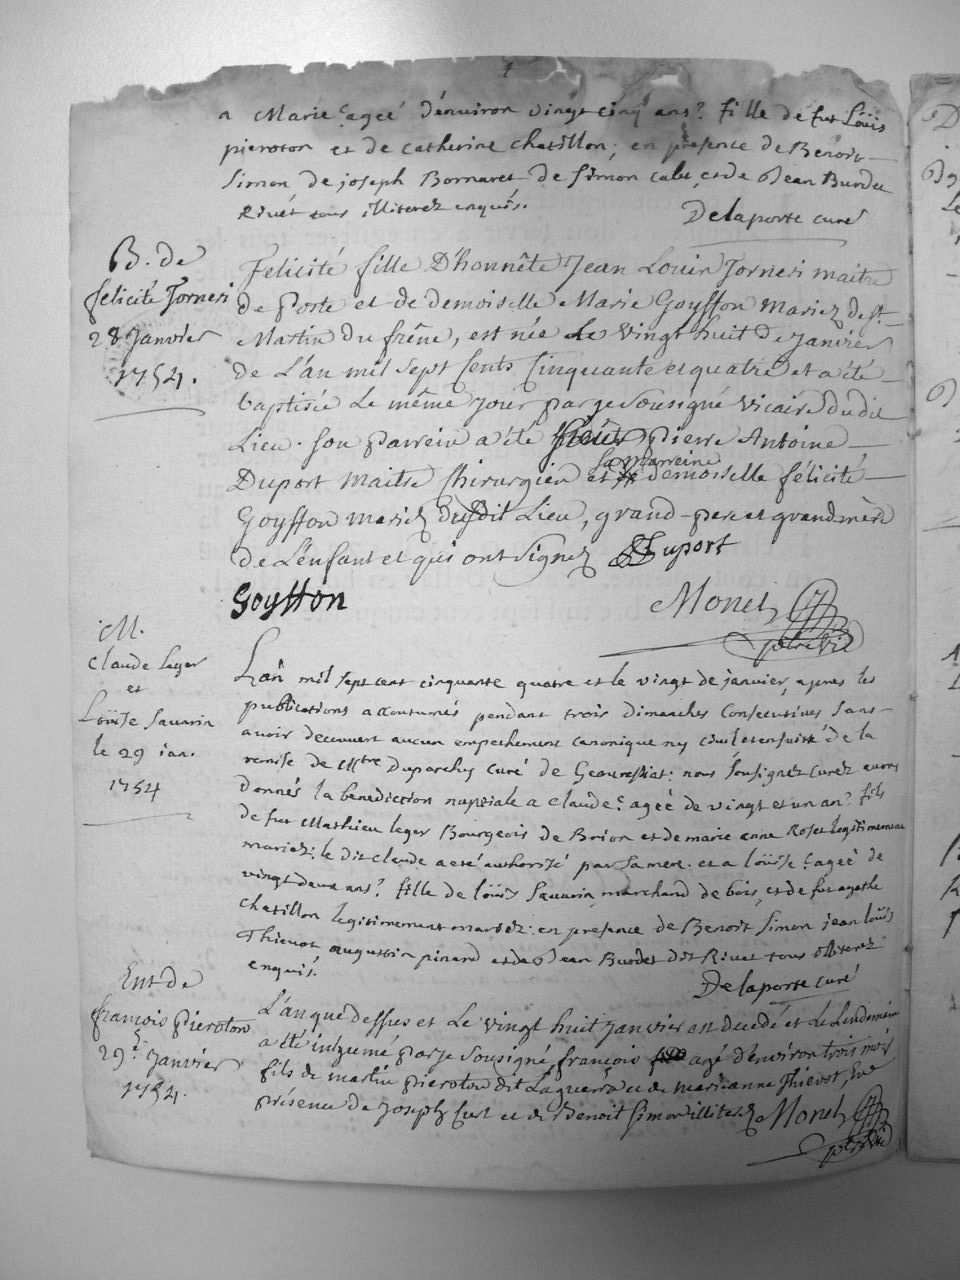 a Marie : agée d'environ vingt cinq ans ? fille de fut Loüis
pieroton et de catherine chatillon ; en presence de Benoit
Simon de joseph Bornaret de Simon et de Jean Burdet
Rivet tous illiterez enquis.
Delaporte curé
B. de
felicité Torneri
28 Janvier
1754.
Felicité fille D'honnête Jean Louis Torneri maitre
de Poste et de demoiselle Marie Goyffon Mariez de St
Martin du frêne, est née le vingt huit de Janvier
de L'an mil sept Cents Cinquante et quatre et a été
baptisée Le même Jour par je Sousigné vicaire dudit
Lieu. Son parrein a été Pierre Antoine
Duport Maitre Chirurgien et sa Marreine demoiselle félicité
Goyffon mariez dudit Lieu, grand-pere et grand mère
de L'enfant et qui ont Signez Duport
Goyffon
Monet
ptre vic
M.
Claude Leger
et
Loüise Sauarin
le 29 ian.
1754
L'an mil sept cent cinquante quatre et le vingt de janvier, apres les
publications accoutumés pendant trois dimanches Consecutives Sans
avoir decouvert aucun empechement canonique ny civil et ensuitte de la
remise de Mtre Duparchy curé de Geauressiat : nous Sousignez curez avons
donnés la benediction nuptiale a Claude : agée de vingt et un an ? fils
de fut Mathieu leger Bourgeois de Brion et de marie anne Roset legitimement
mariez : le dit Claude a eté authorisé par sa mere. et a loüise : ageé de
vingt deux ans ? fille de loüis Sauarin marchand de bois, et de fut agathe
Chatillon legitimement mariez : en presence de Benoit Simon jean loüis
Thievot augustin pinard et de Jean Burdet dit Rivet tous illiterez
enquis.
Delaporte curé
Ent de
françois pieroton
29e Janvier
1754.
L'an que dessus et Le vingt huit janvier est decedé et Le Lendemain
a été inhumé par je Sousigné françois agé d'environ trois mois
fils de martin pieroton dit Laguerre et de marieanne Thievot, En
présence de Joseph et de Benoit Simon illiterez Monet
ptre vic